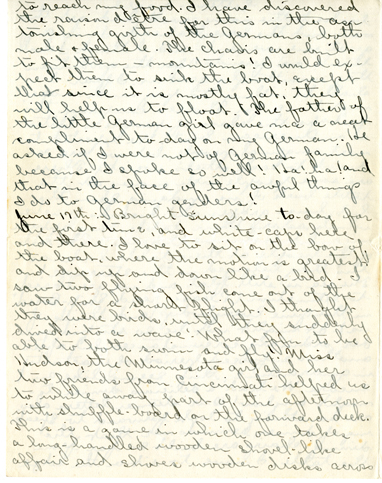 to reach my food. I have discovered
the raison d'etre for this in the as-
tonishing girth of the Germans, both
male & female. The chairs are built
to fit them - mountains! I would ex-
pect them to sink the boat, except
that since it is mostly fat, they
will help us to float! The father of
the little German girl gave me a great
compliment to-day on my German; he
asked if I were not of German family
because I spoke so well! Ha! Ha! and
that in the face of the awful things
I do to German genders!
June 17th: Bright sunshine to-day for
the first time, and white-caps here
and there. I love to sit on the bow of
the boat, where the motion is greatest,
and dip up and down like a bird. I
saw two flying fish come out of the
water for a short flight. I thought
they were birds, until they suddenly
dived into a wave! What fun to be
able to both swim and fly! Miss
Hudson, the Minnesota girl and her
two friends from Cincinnati helped us
to while away part of the afternoon
with shuffle-board on the forward deck.
This is a game in which one takes
a long-handled wooden shovel-like
affair and shoves wooden disks across